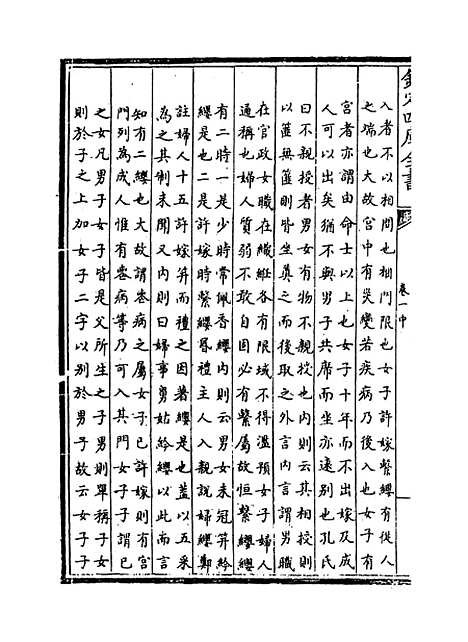 欽定四庫全書
卷一中
入者不以相問也梱門限也女子許嫁繫纓有從人
之端也大故宮中有災變若疾病乃後入也女子有
宮者亦謂由命士以上也女子十年而不出嫁及成
人可以出矣猶不與男子共席而坐亦遠别也孔氏
曰不親授者男女有物不親授也内則云其相授則
以篚無篚則皆坐奠之而後取之外言内言謂男職
在官政女職在織紝各有限域不得濫預女子婦人
通稱也婦人質弱不敢自固必有繫屬故恒繫纓纓
有二時一是少時常佩香纓内則云男女未冠笄紟
纓是也二是許嫁時繫纓昬禮主人入親說婦纓鄭
註婦人十五許嫁笄而禮之因著纓是也蓋以五采
為之其制未聞又内則曰婦事舅姑紟纓以此而言
知有二纓也大故謂喪病之屬女子已許嫁則有宮
門列為成人惟有喪病等乃可入其門女子子謂已
之女凡男子女子皆是父所生之子男則單稱子女
則於子之上加女子二字以别於男子故云女子子